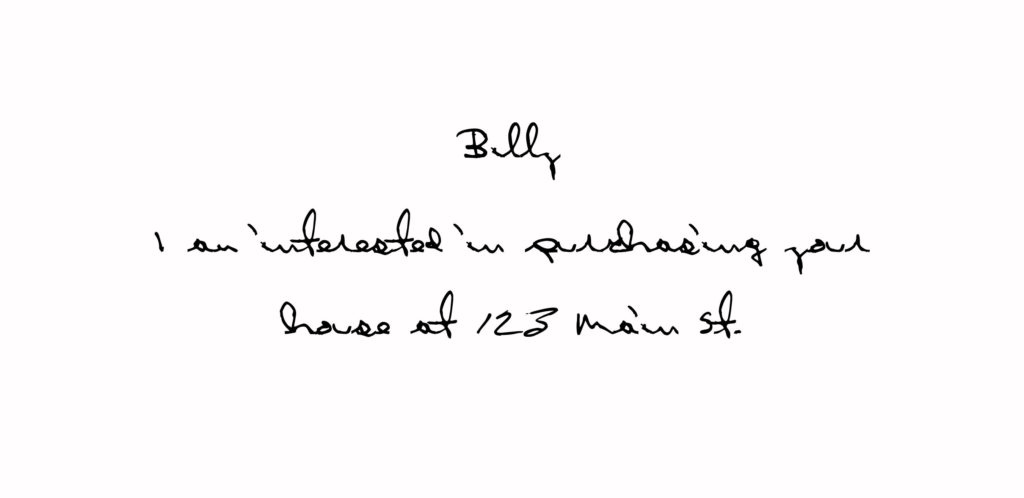 Billy
I am interested in purchasing your
house at 123 Main St.